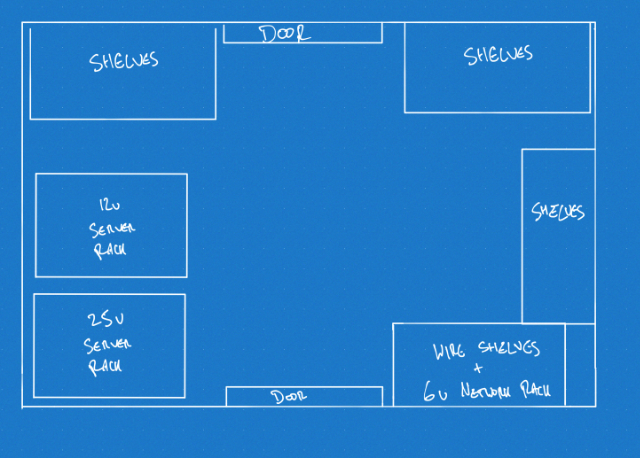 DOOR
SHELVES
SHELVES
12U
SERVER
RACK
SHELVES
25U
SERVER
RACK
WIRE SHELVES
+
6U NETWORK RACK
DOOR